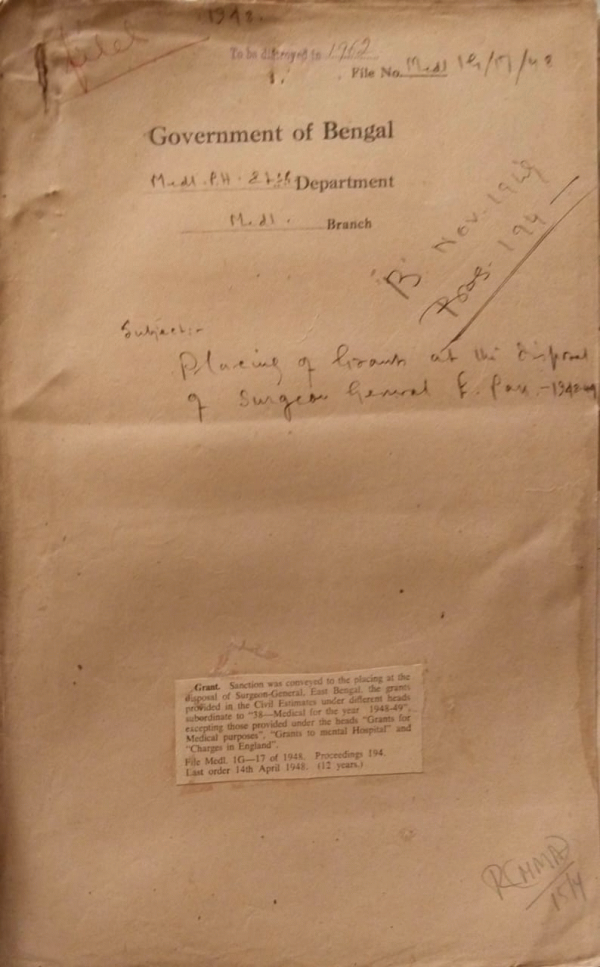 filed 1948.
To be destroyed in 1962
1.
File No. Medl 1G/17/48
Government of Bengal
Medl. P.H. & Department
Medl. Branch
'B' Nov. 1949
Progs. 194
Subject:-
Placing of Grants at the disposal
of Surgeon General E. Pak. -1948-49
Grant. Sanction was conveyed to the placing at the
disposal of Surgeon-General, East Bengal, the grants
provided in the Civil Estimates under different heads
subordinate to "38—Medical for the year 1948-49",
excepting those provided under the heads "Grants for
Medical purposes", "Grants to mental Hospital" and
"Charges in England".
File Medl. 1G—17 of 1948. Proceedings 194.
Last order 14th April 1948. (12 years.)
15/4